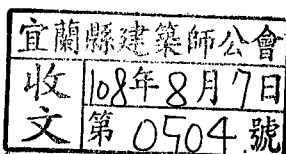 宜蘭縣建築師公會
收文
108年8月7日
第0504號